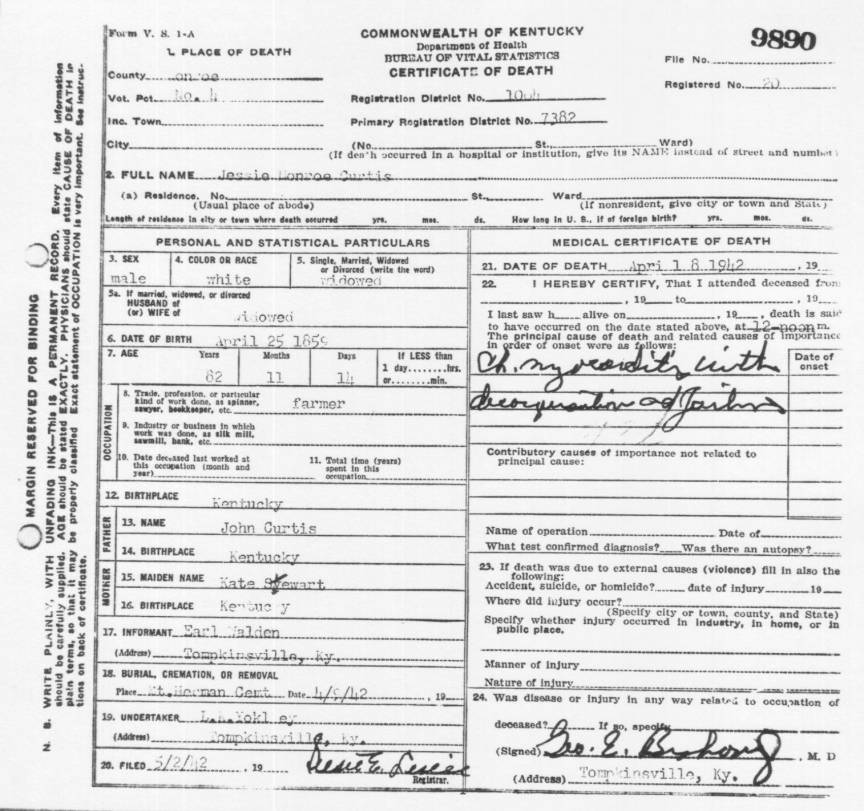 Form V. S. 1-A
COMMONWEALTH OF KENTUCKY
Department of Health
BUREAU OF VITAL STATISTICS
CERTIFICATE OF DEATH
9890
File No.
Registered No. 20
1. PLACE OF DEATH
County onroe
Vot. Pct. No. 4
Registration District No. 1004
Inc. Town
Primary Registration District No. 7382
City
(No. St., Ward)
(If death occurred in a hospital or institution, give its NAME instead of street and number)
2. FULL NAME Jessie Monroe Curtis
(a) Residence. No. St., Ward
(Usual place of abode) (If nonresident, give city or town and State)
Length of residence in city or town where death occurred yrs. mos. ds. How long in U. S., if of foreign birth? yrs. mos. ds.
PERSONAL AND STATISTICAL PARTICULARS
3. SEX
male
4. COLOR OR RACE
white
5. Single, Married, Widowed
or Divorced (write the word)
widowed
5a. If married, widowed, or divorced
HUSBAND of
(or) WIFE of widowed
6. DATE OF BIRTH April 25 1859
7. AGE Years Months Days If LESS than
1 day........hrs.
82 11 14 or........min.
OCCUPATION
8. Trade, profession, or particular
kind of work done, as spinner,
sawyer, bookkeeper, etc. farmer
9. Industry or business in which
work was done, as silk mill,
sawmill, bank, etc.
10. Date deceased last worked at
this occupation (month and
year)
11. Total time (years)
spent in this
occupation
12. BIRTHPLACE Kentucky
FATHER
13. NAME John Curtis
14. BIRTHPLACE Kentucky
MOTHER
15. MAIDEN NAME Kate Stewart
16. BIRTHPLACE Kentuc y
17. INFORMANT Earl Walden
(Address) Tompkinsville, Ky.
18. BURIAL, CREMATION, OR REMOVAL
Place Mt. Herman Cemt Date 4/9/42, 19
19. UNDERTAKER Yokley
(Address) Tompkinsville, Ky.
20. FILED 5/2/42, 19
Registrar.
MEDICAL CERTIFICATE OF DEATH
21. DATE OF DEATH April 8 1942, 19
22. I HEREBY CERTIFY, That I attended deceased from
, 19 to , 19
I last saw h alive on , 19 , death is said
to have occurred on the date stated above, at 12-noon m.
The principal cause of death and related causes of importance
in order of onset were as follows:
Date of
onset
Ch. myocarditis with
Contributory causes of importance not related to
principal cause:
Name of operation Date of
What test confirmed diagnosis? Was there an autopsy?
23. If death was due to external causes (violence) fill in also the
following:
Accident, suicide, or homicide? date of injury 19
Where did injury occur?
(Specify city or town, county, and State)
Specify whether injury occurred in industry, in home, or in
public place.
Manner of injury
Nature of injury
24. Was disease or injury in any way related to occupation of
deceased? If so, specify
(Signed) Geo. E. , M. D
(Address) Tompkinsville, Ky.
MARGIN RESERVED FOR BINDING
N. B. WRITE PLAINLY, WITH UNFADING INK—This IS A PERMANENT RECORD. Every item of information
should be carefully supplied. AGE should be stated EXACTLY. PHYSICIANS should state CAUSE OF DEATH in
plain terms, so that it may be properly classified. Exact statement of OCCUPATION is very important. See instruc-
tions on back of certificate.